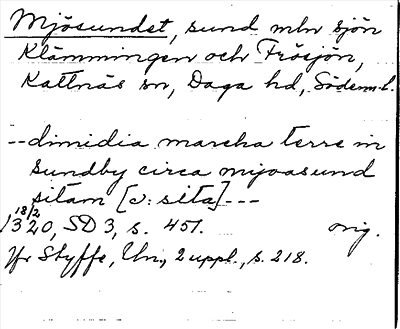 Mjösundet, sund mln sjön
Klämmingen och Frösjön,
Kattnäs sn, Daga hd, Söderm.l.
--dimidia marcha terre in
sundby circa mijoasund
sitam [ɔ: sita]---
18/2 1320, SD 3, s. 451. orig.
Jfr Styffe, Un., 2 uppl., s. 218.